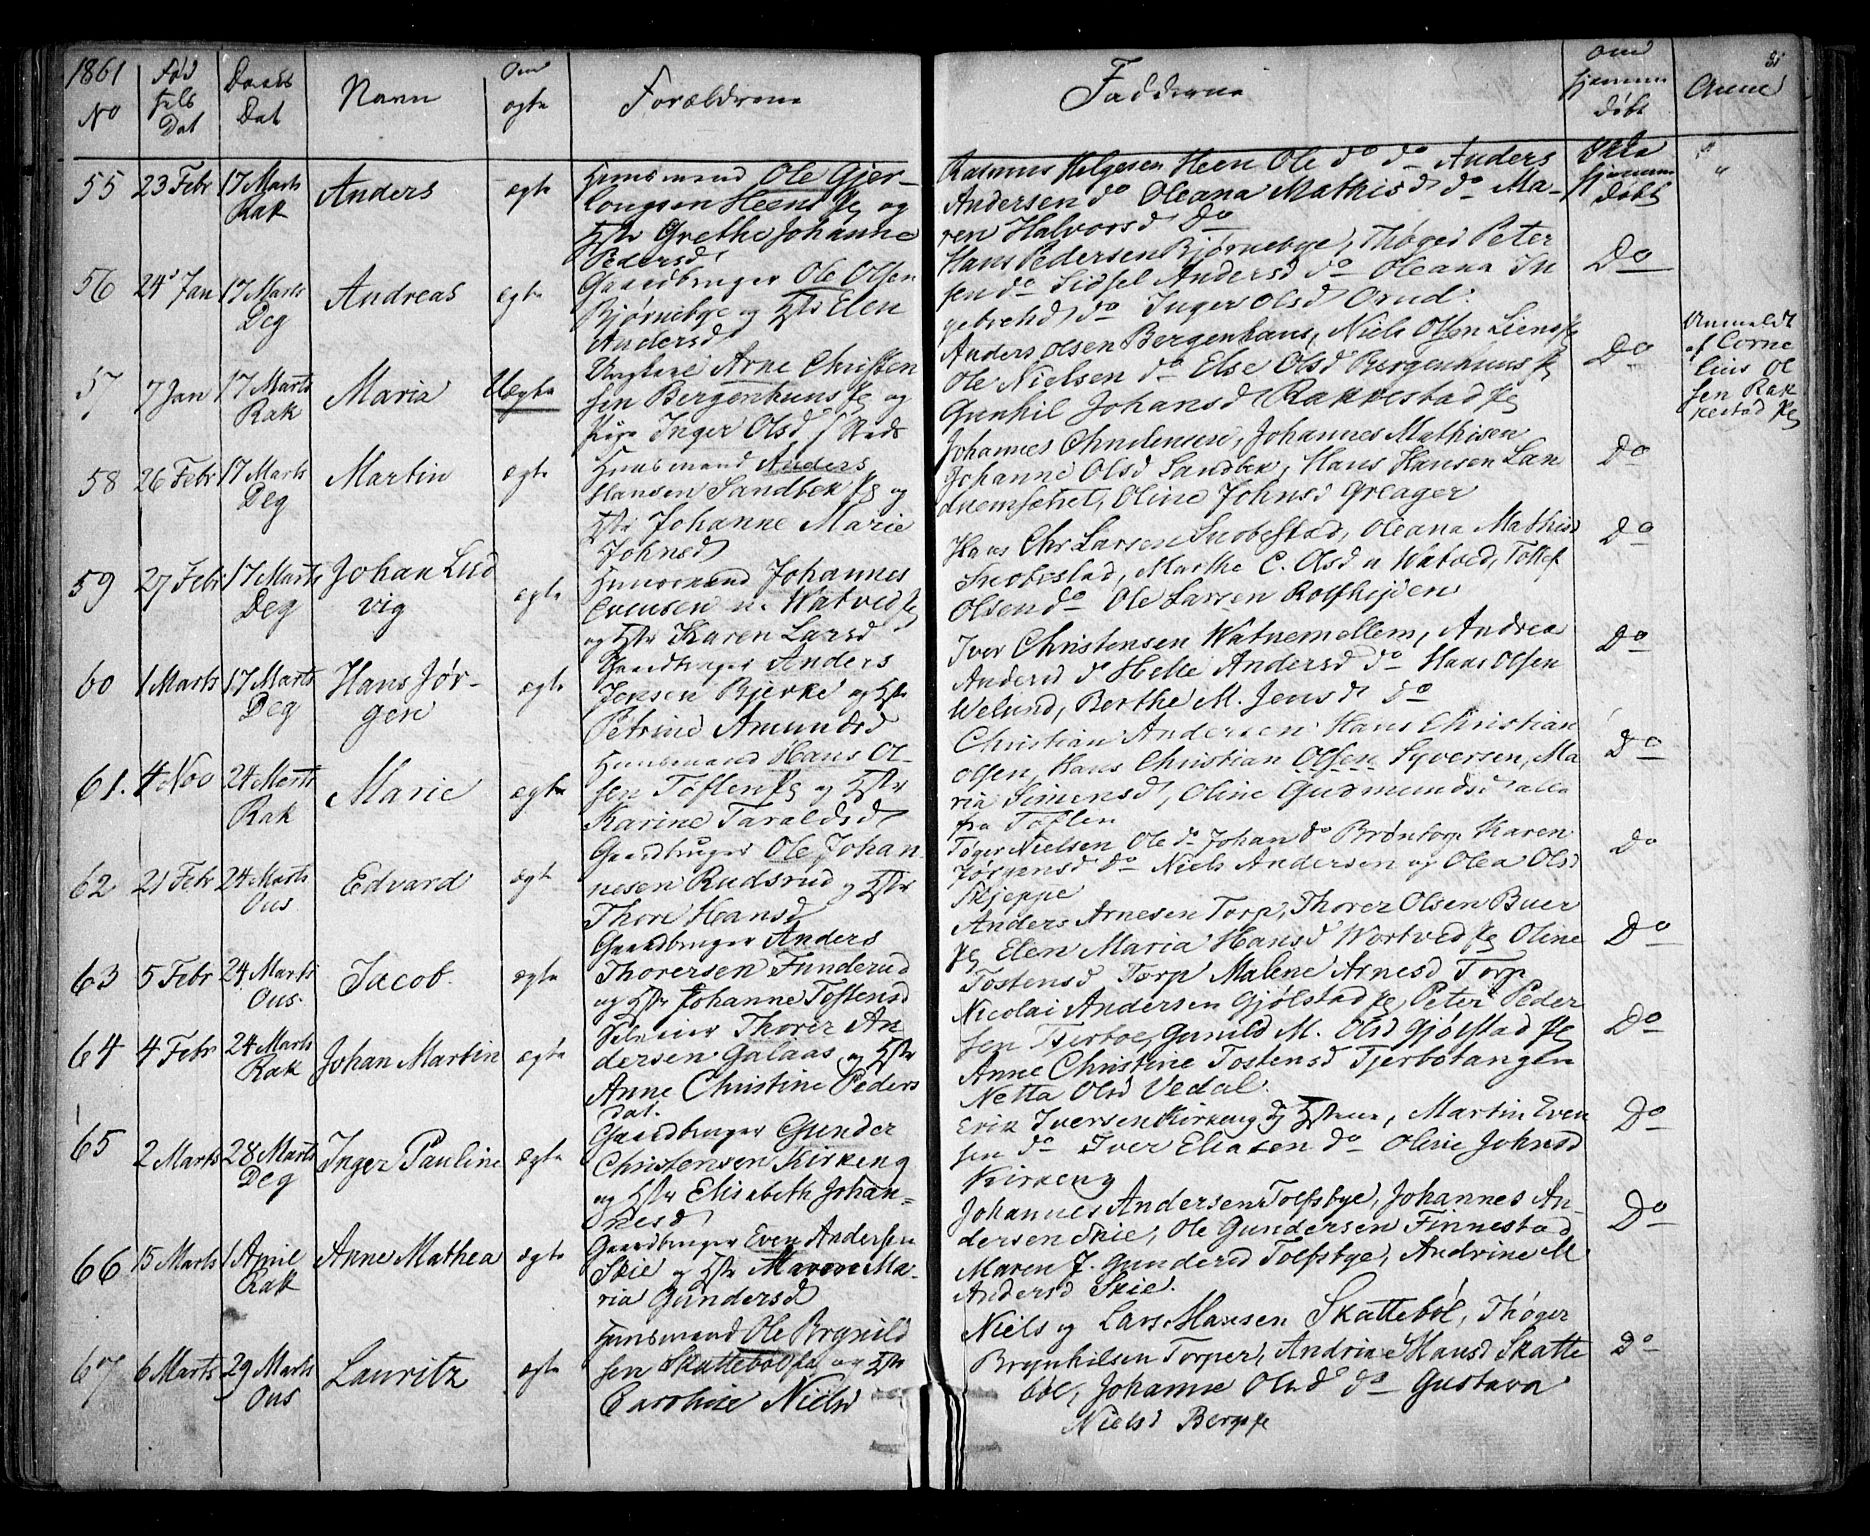 1861
No
Fød
sels
Dat
Daabs
Dat
Navn
Om
ægte
Forældrene
Fadderne
Om
hjemme
døbt
Anm
55 23 Febr 17 Marts
Rak
Anders
ægte
Huusmand Ole Gjer-
Heens Pl og
Hstr Grethe Johanne
Pedersd
Rasmus Helgesen Heen Ole do do Anders
Andersen do Oleana Mathisd do Ma-
ren Halvorsd do
Ikke
hjemme
døbt
56 24 Jan 17 Marts
Deg
Andreas
ægte
Gaardbruger Ole Olsen
Bjørnebye og Hstr Elen
Andersd
Hans Pedersen Bjørnebye, Thøger Peter
sen do Sidsel Andersd do Oleana In
gebrehd do Inger Olsd Orud.
Do
57 7 Jan 17 Marts
Rak
Maria
Uægte
Ungkarl Arne Christen
sen Bergenhuus Pl og
Pige Inger Olsd
Anders Olsen Bergenhuus, Niels Olsen Liens Pl
Ole Nielsen do Else Olsd Bergenhuus Pl
Gunhil Johansd Rakkestad Pl
Do
Anmeldt
af Corne
lius Ol
sen Rak
kestad Pl
58 26 Febr 17 Marts
Deg
Martin
ægte
Huusmand Anders
Hansen Sandbek Pl og
Hstr Johanne Marie
Johnsd
Johannes Christensen, Johannes Mathisen
Johanne Olsd Sandbek, Hans Hansen Lan
duemsætret, Oline Johnsd Greager
Do
59 27 Febr 17 Marts
Deg
Johan Lud
vig
ægte
Huusmand Johannes
Evensen n. Watved Pl
og Hstr Karen Larsd
Hans Chr Larsen Snobestad, Oleana Mathisd
Snobestad, Marthe C. Olsd n Watved, Tostef
Olsen do Ole Larsen Rolfhijden
Do
60 1 Marts 17 Marts
Deg
Hans Jør-
gen
ægte
Gaardbruger Anders
Jensen Bjerke og Hstr
Petrine Amundsd
Iver Christensen Watnemellem, Andrea
Andersd do Helle Andersd do Hans Olsen
Welund, Berthe M. Jensd do
Do
61. 4 Nov 24 Marts
Rak
Marie
ægte
Huusmand Hans Ol-
sen Toften Pl og Hstr
Karine Taraldsd
Christian Andersen Hans Christian
Olsen, Hans Christian Olsen Syversen, Ma
ria Simensd, Oline Gudmundsd alle
fra Toften
Do
62 21 Febr 24 Marts
Ous
Edvard
ægte
Gaardbruger Ole Johan-
nesen Rudsrud og Hstr
Thore Hansd
Tøger Nielsen Ole do Johan do Brøntorp Karen
Jørgensd do Niels Andersen og Olea Olsd
Skjeppe
Do
63 5 Febr 24 Marts
Ous
Jacob.
ægte
Gaardbruger Anders
Thorersen Funderud
og Hstr Johanne Toftensd
Anders Arnesen Torp, Thorer Olsen Buer
Pl Elen Maria Hansd Wortved Pl Oline
Tostensd Torp Malene Arnesd Torp
Do
64 4 Febr 24 Marts
Rak
Johan Martin
ægte
Thorer An-
dersen Galaas og Hstr
Anne Christine Peders
Dat.
Nicolai Andersen Gjølstad Pl, Peter Peder
sen Tjerbøe, Gunild M. Olsd Gjølstad Pl
Anne Christine Tostensd Tjerbøtangen
Netta Olsd Vedal.
Do
65 2 Marts 28 Marts
Deg
Inger Pauline
ægte
Gaardbruger Gunder
Christensen Kirkeng
og Hstr Elisabeth Johan-
nesd
Erik Iversen Kirkeng og Hstrue, Martin Even
sen do Iver Eliasen do Oline Johnsd
Kirkeng
Do
66 15 Marts 1 April
Rak
Anne Mathea
ægte
Gaardbruger Even Andersen
Skie og Hstr Maren Ma-
ria Gundersd
Johannes Andersen Tolfsbye, Johannes An-
dersen Skie, Ole Gundersen Finnestad
Maren J. Gundersd Tolfsbye, Andrine M
Andersd Skie.
Do
67 6 Marts 29 Marts
Ous
Lauritz
ægte
Huusmand Ole Brynild
sen Skattebøl Pl og Hstr
Caroline Nielsd
Niels og Lars Hansen Skattebøl, Thøger
Brynhilsen Torper, Andria Hansd Skatte
bøl, Johanne Olsd do Gustava
Nielsd Bergs Pl
Do